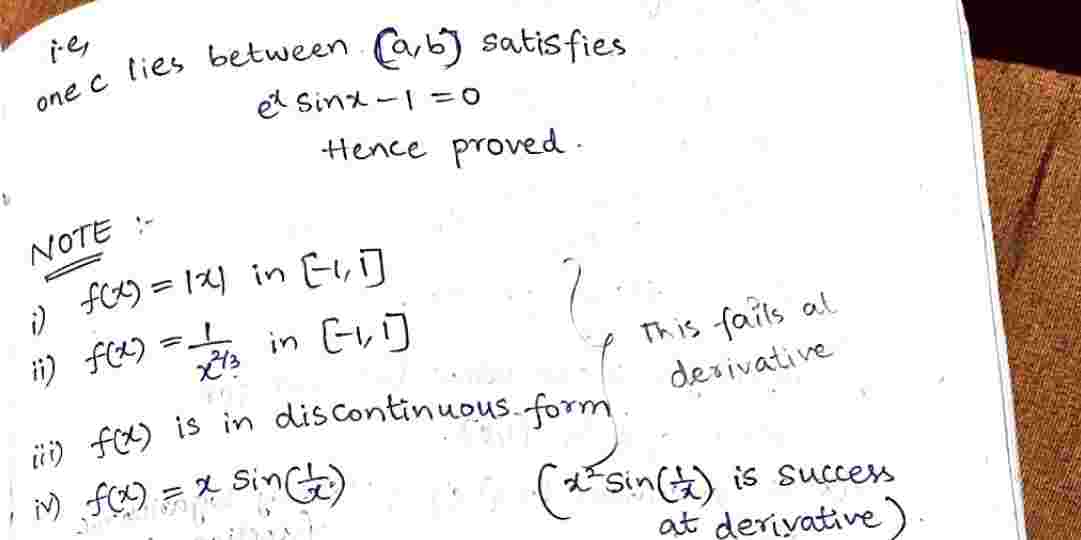 i.e,
one c lies between [a,b] satisfies
e^x sinx - 1 = 0
Hence proved.
NOTE :-
i) f(x) = |x| in [-1, 1]
ii) f(x) = 1/x^2/3 in [-1, 1]
iii) f(x) is in discontinuous form.
iv) f(x) = x sin(1/x)
This fails at
derivative
(x^2 sin(1/x) is success
at derivative).